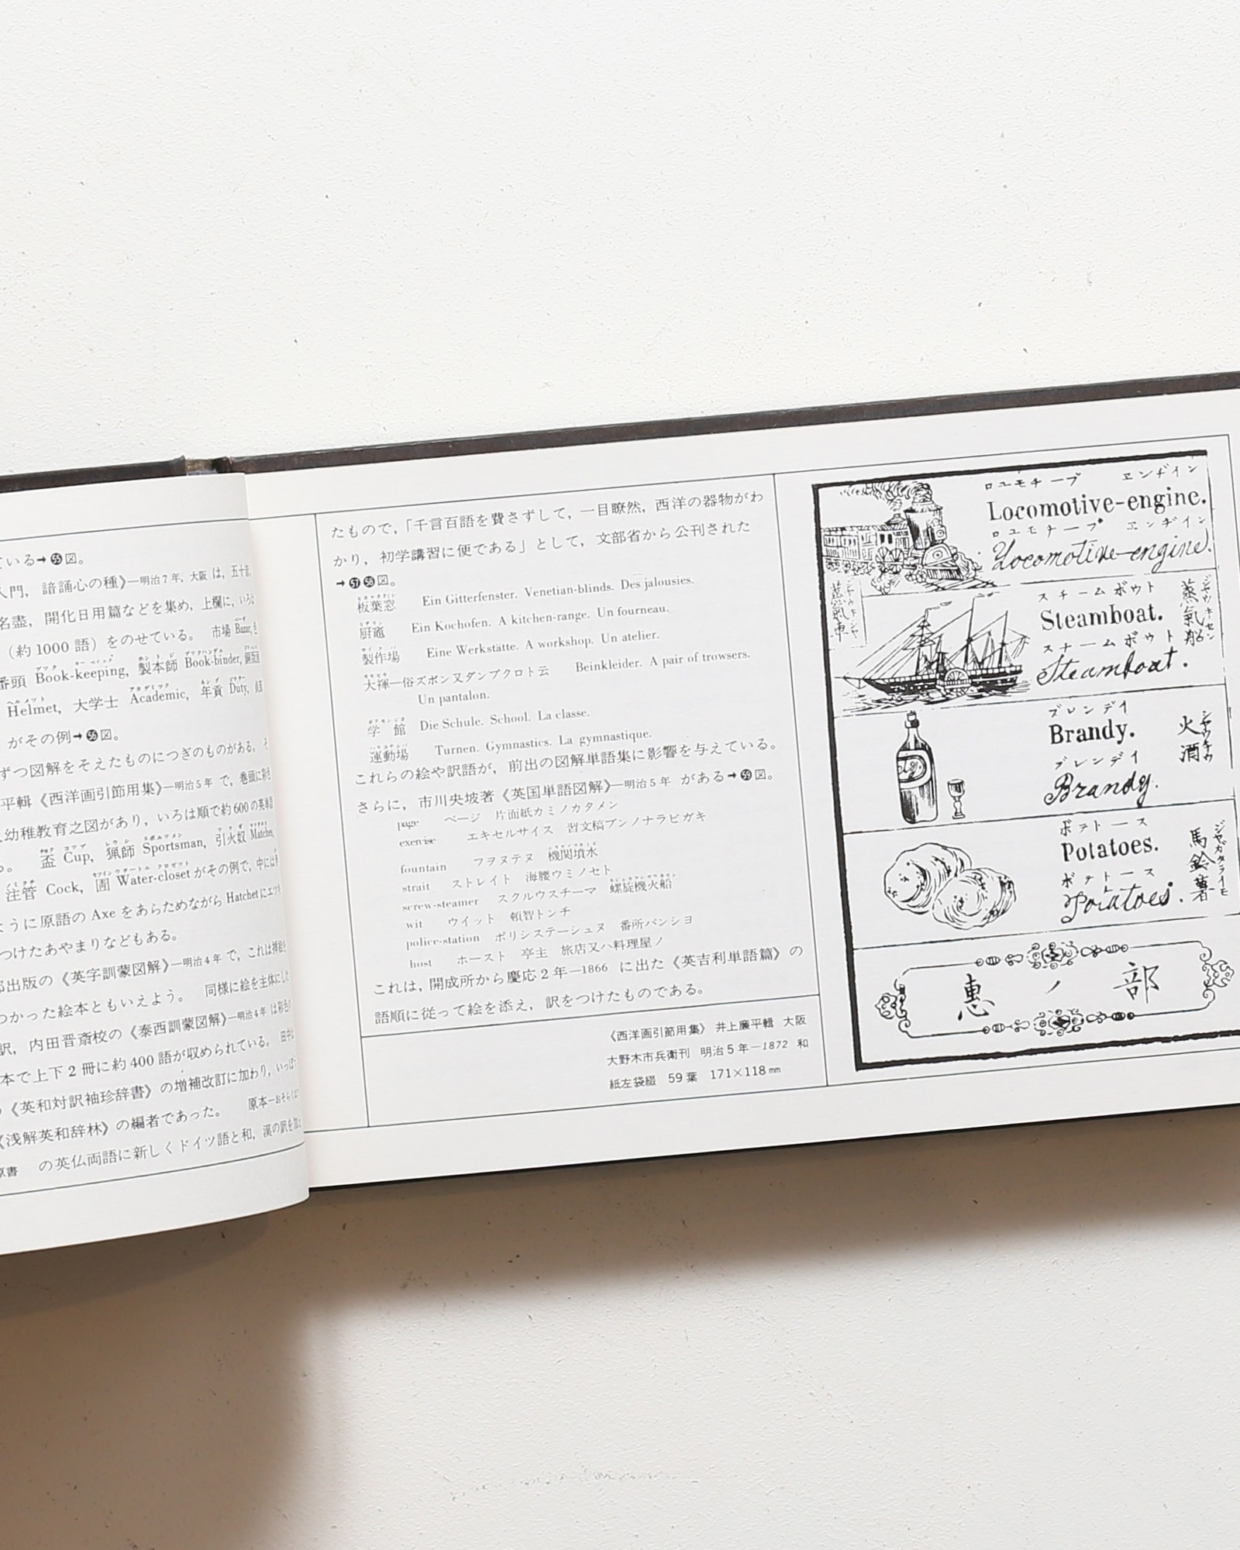 ている➡㊺図。
入門，諳誦心の種》—明治7年，大阪 は，五十音
名盡，開化日用篇などを集め，上欄に，いろは
（約1000語）をのせている。 市場 Bazar,
番頭 Book-keeping, 製本師 Book-binder,
Helmet, 大学士 Academic, 年貢 Duty,
がその例➡図。
ずつ図解をそえたものにつぎのものがある。
平輯《西洋画引節用集》—明治5年 で，巻頭に
幼稚教育之図があり，いろは順で約600の
盃 Cup, 猟師 Sportsman, 引火奴 Matches,
注管 Cock, 圊 Water-closet がその例で，中には
ように原語の Axe をあらためながら Hatchet に
つけたあやまりなどもある。
出版の《英字訓蒙図解》—明治4年 で，これは
つかった絵本ともいえよう。 同様に絵を主体にした
訳，内田晋斎校の《泰西訓蒙図解》—明治4年 は
本で上下2冊に約400語が収められている。
《英和対訳袖珍辞書》の増補改訂に加わり，
《浅解英和辞林》の編者であった。 原本—おそらく
原書 の英仏両語に新しくドイツ語と和，漢の訳を
たもので，「千言百語を費さずして，一目瞭然，西洋の器物がわ
かり，初学講習に便である」として，文部省から公刊された
➡57 58図。
板葉窓 Ein Gitterfenster. Venetian-blinds. Des jalousies.
厨竈 Ein Kochofen. A kitchen-range. Un fourneau.
製作場 Eine Werkstatte. A workshop. Un atelier.
大褌—俗ズボン又ダンブクロト云 Beinkleider. A pair of trowsers.
Un pantalon.
学館 Die Schule. School. La classe.
運動場 Turnen. Gymnastics. La gymnastique.
これらの絵や訳語が，前出の図解単語集に影響を与えている。
さらに，市川央坡著《英国単語図解》—明治5年 がある➡59図。
page ページ 片面紙カミノカタメン
exercise エキセルサイズ 習文稿ブンノナラビガキ
fountain フヲヌテヌ 機関墳水
strait ストレイト 海腰ウミノセト
screw-steamer スクルウスチーマ 螺旋機火船
wit ウイット 頓智トンチ
police-station ポリシステーシュヌ 番所バンショ
host ホースト 亭主 旅店又ハ料理屋ノ
これは，開成所から慶応2年—1866 に出た《英吉利単語篇》の
語順に従って絵を添え，訳をつけたものである。
《西洋画引節用集》 井上廣平輯 大阪
大野木市兵衛刊 明治5年—1872 和
紙左袋綴 59葉 171×118mm
ロコモチーブ エンヂイン
Locomotive-engine.
ロコモチーブ エンヂイン
Locomotive-engine.
蒸氣車
スチームボウト
Steamboat.
スチームボウト
Steamboat.
蒸氣船
ブレンデイ
Brandy.
ブレンデイ
Brandy.
火酒
ポテトース
Potatoes.
ポテトース
Potatoes.
馬鈴薯
ジャガタライモ
惠ノ部